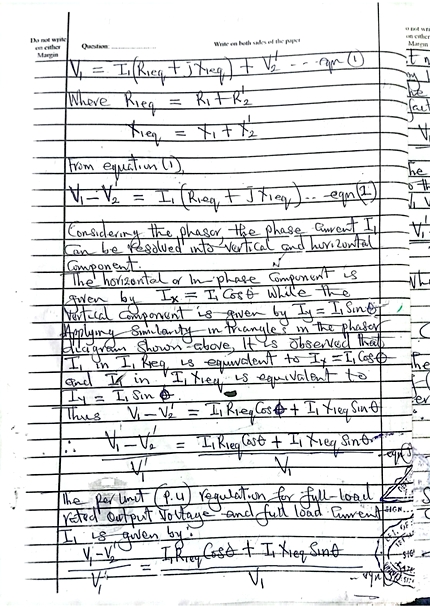 Do not write
on either
Margin
Question
Write on both sides of the paper
V₁ = I₁(R₁eq + jX₁eq) + V₂' --- eqn (1)
Where R₁eq = R₁ + R₂'
X₁eq = X₁ + X₂'
From equation (1),
V₁ - V₂' = I₁(R₁eq + jX₁eq) ... eqn(2)
Considering the phasor, the phase current I₁
Can be resolved into vertical and horizontal
Component.
The horizontal or In-phase Component is
given by Iₓ = I₁Cosθ while the
Vertical Component is given by Iy = I₁Sinθ
Applying Similarity in triangles in the phasor
diagram shown above, It is observed that
I₁ in I₁Req is equivalent to Iₓ = I₁Cosθ
and I₁ in I₁X₁eq is equivalent to
Iy = I₁ Sinθ
Thus V₁ - V₂' = I₁R₁eqCosθ + I₁X₁eqSinθ
∴ V₁ - V₂' / V₁' = I₁R₁eqCosθ + I₁X₁eqSinθ / V₁ --- eqn
The per unit (P.U) regulation for full-load
rated output Voltage and full load Current
I₁ is given by:
V₁ - V₂' / V₁' = I₁R₁eqCosθ + I₁X₁eqSinθ / V₁ --- eqn